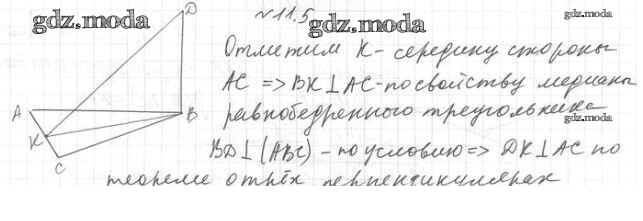 №11.5
gdz.moda
D
gdz.moda
gdz.moda
Отметим К - середину стороны
AC => BK ⊥ AC - по свойству медианы
A
B
K
C
равнобедренного треугольника
gdz.moda
BD ⊥ (ABC) - по условию => DK ⊥ AC по
теореме о трёх перпендикулярах